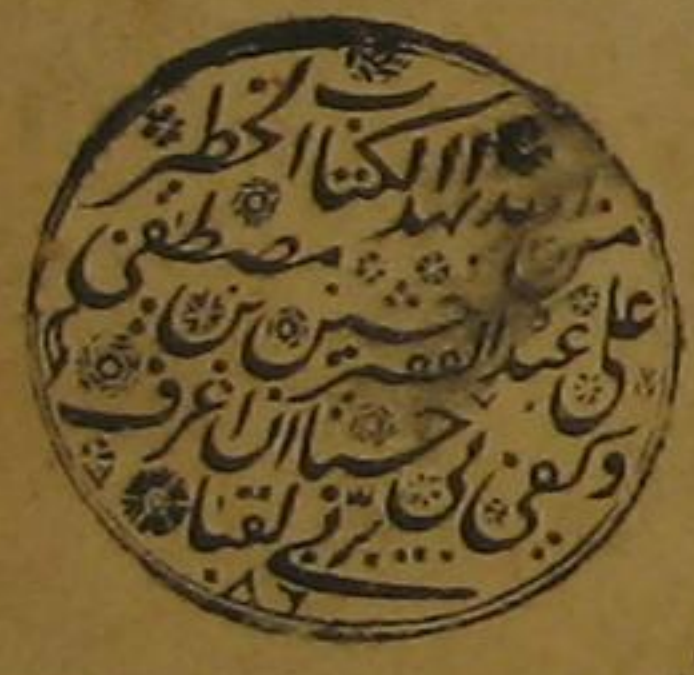 من بهذا الكتاب الخطير
على عبده الفقير حسين بن مصطفى
وكفى بي حسبا ان اعرف
لقبا